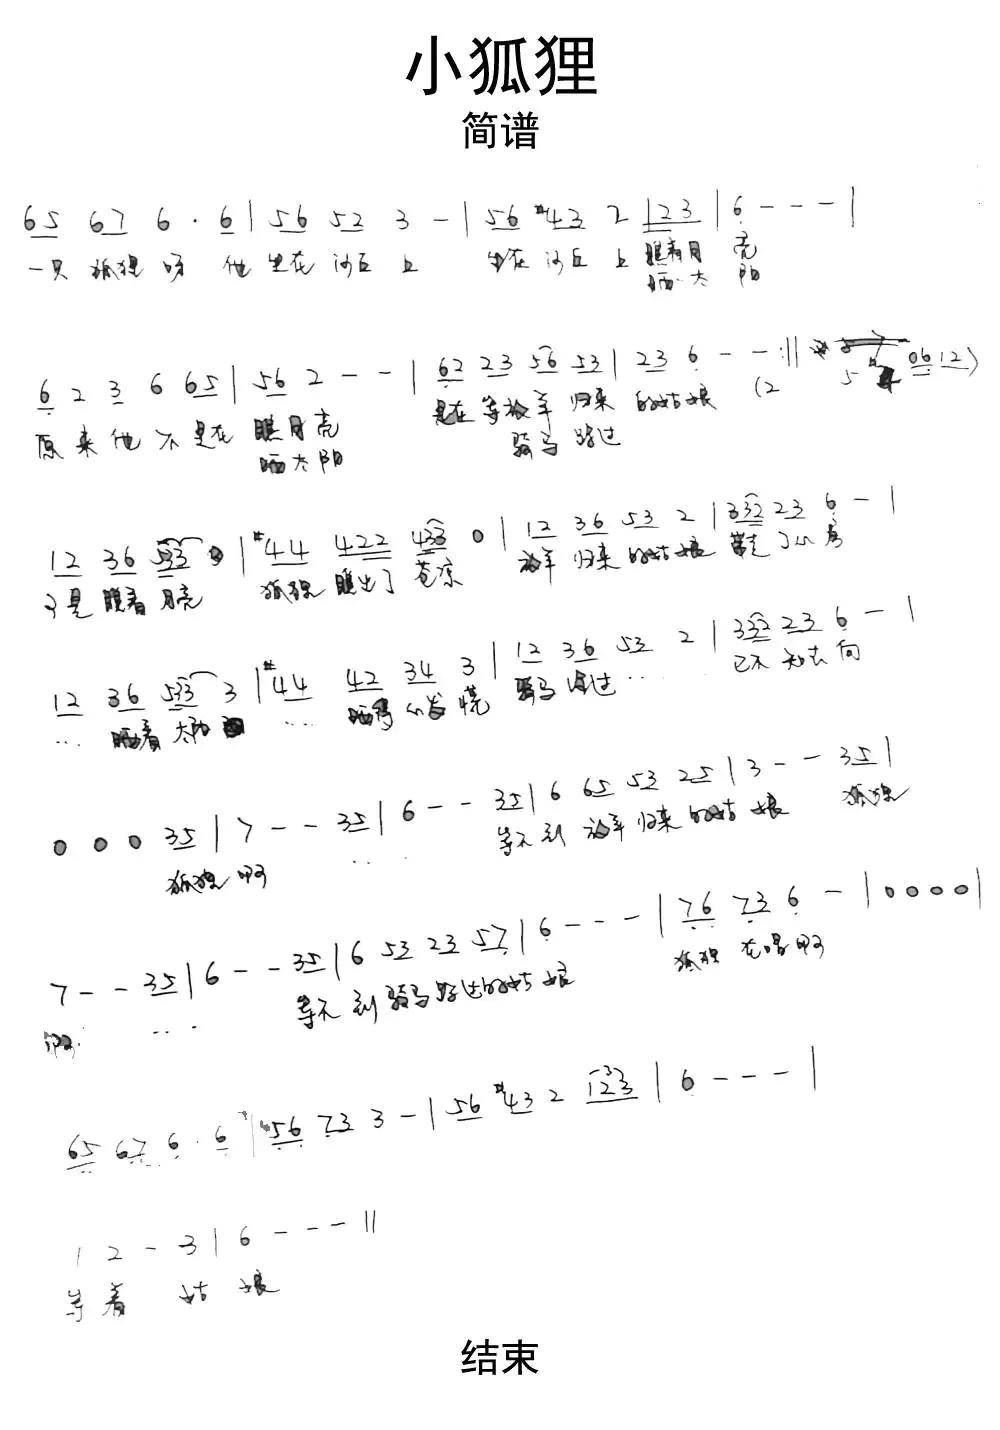 小狐狸
简谱
65 67 6 · 6 | 56 52 3 - | 56 #43 2 123 | 6 - - - |
一只 狐狸 呀 他 坐在 沙丘 上 坐在 沙丘 上 瞧着月 亮
晒太 阳
6 2 3 6 65 | 56 2 - - | 62 23 56 53 | 23 6 - - :||
原 来 他 不 是在 瞧月 亮 是在 等放 羊 归来 的姑 娘
晒太 阳 骑马 路过
12 36 533 0 | #44 422 433 0 | 12 36 53 2 | 332 23 6 - |
只是 瞧着 月亮 狐狸 瞧出了 苍凉 放羊 归来 的姑 娘
12 36 533 3 | #44 42 34 3 | 12 36 53 2 | 332 23 6 - |
... 晒着 太阳 ... 晒得 心发 慌 骑马 路过 ... 已不 知去 向
0 0 0 35 | 7 - - 35 | 6 - - 35 | 6 65 53 25 | 3 - - 35 |
狐狸 啊 ... 等不 到 放羊 归来 的姑 娘 狐狸
7 - - 35 | 6 - - 35 | 6 53 23 57 | 6 - - - | 76 73 6 - | 0 0 0 0 |
啊 ... 等不 到 骑马 路过 的姑 娘 狐狸 在唱 啊
65 67 6 · 6 | 56 73 3 - | 56 #43 2 123 | 6 - - - |
1 2 - 3 | 6 - - - ||
等 着 姑 娘
结束